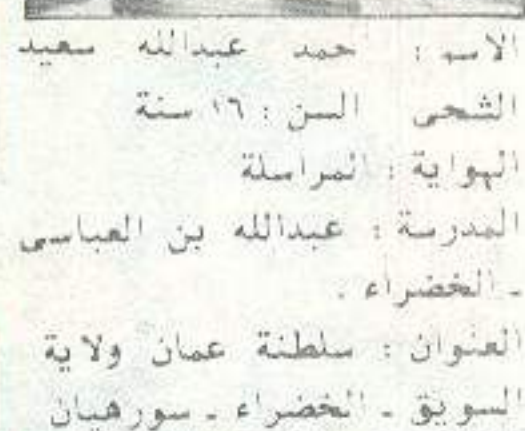 الاسم : احمد عبدالله سعيد
الشحى السن : ١٦ سنة
الهواية : المراسلة
المدرسة : عبدالله بن العباسى
ـ الخضراء .
العنوان : سلطنة عمان ولاية
السويق ـ الخضراء ـ سورهيان